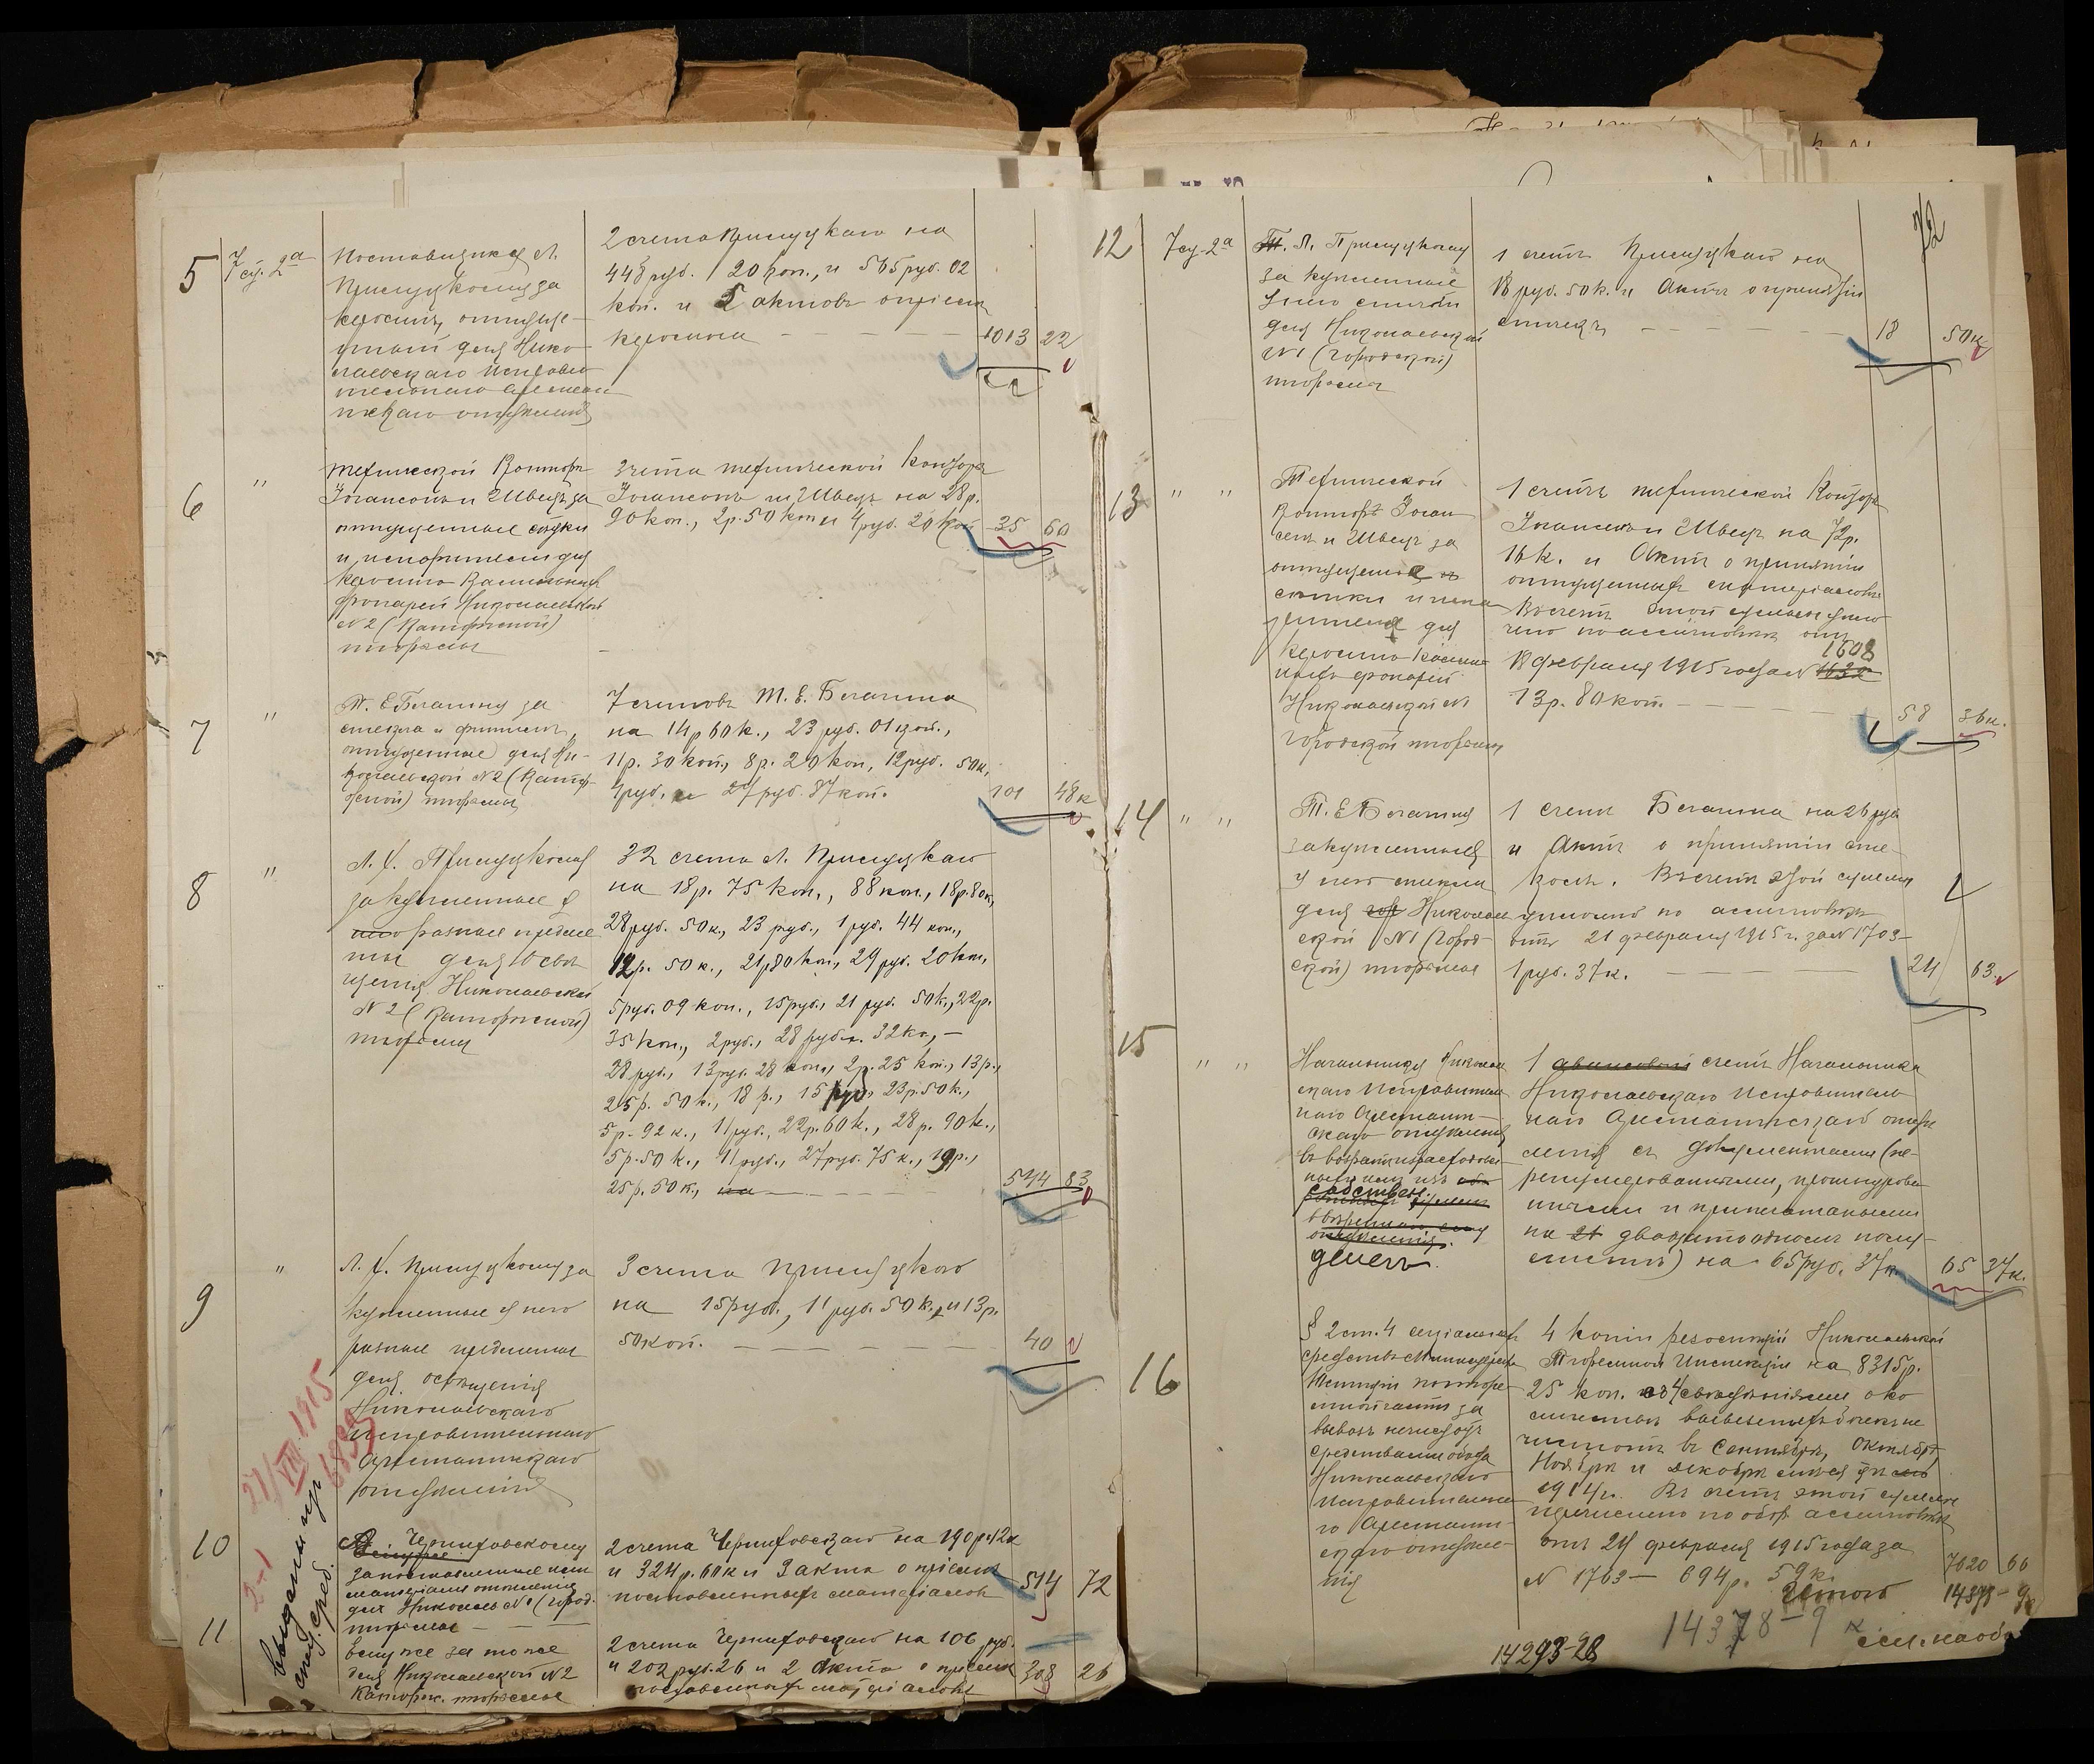 5
7 ст. 2а
Поставщику Л.
Прилуцкому за
керосинъ, отпуще-
нный для Нико-
лаевскаго Исправи
тельнаго Арестан
тскаго отдѣленія
2 счета Прилуцкаго на
448 руб. 20 коп., и 565 руб. 02
коп. и 5 актовъ о пріемѣ
керосина
1013 22
6
"
Технической Конторѣ
Іогансонъ и Швецъ за
отпущенные сѣтки
и испарители для
керосино-калильныхъ
фонарей Николаевской
№ 2 (Каторжной)
тюрьмы
3 счета технической Конторы
Іогансонъ и Швецъ на 28 р.
90 коп., 2 р. 50 коп и 4 руб. 20 коп
35 60
7
"
Т. Е. Беганину за
стекла и фитили,
отпущенные для Ни-
колаевской № 2 (Катор-
жной) тюрьмы
7 счетовъ Т. Е. Беганина
на 14 р 60 к., 23 руб. 01 коп.,
11 р. 30 коп., 8 р. 20 коп, 12 руб. 50 к,
4 руб. и 27 руб. 87 коп.
101 48 к
8
"
Л. Х. Прилуцкому
за купленные у
него разные предме
ты для освѣ
щенія Николаевской
№ 2 (Каторжной)
тюрьмы
32 счета Л. Прилуцкаго
на 18 р. 75 коп., 88 коп., 18 р. 80 к,
28 руб. 50 к., 23 руб., 1 руб. 44 коп.,
12 р. 50 к., 21 р 80 коп, 29 руб. 20 коп,
5 руб. 09 коп., 15 руб., 21 руб. 50 к., 22 р.
35 коп., 2 руб., 28 рубл. 32 ко, —
28 руб., 13 руб. 28 коп., 2 р. 25 коп., 13 р.,
25 р. 50 к., 18 р., 15 руб, 23 р. 50 к.,
5 р. 92 к., 11 руб., 22 р. 60 к., 28 р. 90 к.,
5 р. 50 к., 11 руб., 27 руб. 75 к., 19 р.,
25 р. 50 к., на
544 83
9
"
Л. Х. Прилуцкому за
купленные у него
разные предметы
для освѣщенія
Николаевскаго
исправительнаго
Арестантскаго
отдѣленія
3 счета Прилуцкаго
на 15 руб., 11 руб. 50 к., и 13 р.
50 коп.
40
27/VIII 1915
6839
2-1
выданы изъ
спец. сред.
10
Черниховскому
за поставленные имъ
матеріалы отопленія
для Николаев № 1 (город.
тюрьмы
2 счета Черниховскаго на 190 р 12 к
и 324 р. 60 к и 3 акта о пріемѣ
поставленныхъ матеріаловъ
514 72
11
Ему же за тоже
для Николаевской № 2
Каторж. тюрьмы
2 счета Черниховскаго на 106 руб.
и 202 руб. 26 и 2 Акта о пріемѣ
поставленныхъ матеріаловъ
308 26
22
12
7 ст. 2а
Л. Прилуцкому
за купленные
у него спички
для Николаевской
№ 1 (городской)
тюрьмы
1 счетъ Прилуцкаго на
18 руб. 50 к. и Актъ о принятіи
спичекъ
18 50 к
13
" "
Технической
Конторѣ Іоган
сонъ и Швецъ за
отпущенные
сѣтки и испа
рители для
керосино-калиль
ныхъ фонарей
Николаевской №1
городской тюрьмы
1 счетъ технической Конторы
Іогансонъ и Швецъ на 72 р.
16 к. и Актъ о принятіи
отпущенныхъ матеріаловъ
Въ счетъ этой суммы упло
чено по ассигновкѣ отъ
18 февраля 1915 года № 1632
1608
13 р. 80 коп.
58 36 к.
14
" "
Т. Е. Беганину
за купленныя
у него стекла
для гор Николаев
ской № 1 (Город-
ской) тюрьмы
1 счетъ Беганина на 26 руб
и Актъ о принятіи сте-
колъ. Въ счетъ этой суммы
уплочено по ассигновкѣ
отъ 21 февраля 1915 г. за № 1703 —
1 руб. 37 к.
24 63
15
" "
Начальнику Николаев
скаго Исправитель
наго Арестант-
скаго отдѣленія
въ возвратъ израсходован-
ныхъ имъ изъ
собствен.
денегъ.
1 авансовый счетъ Начальника
Николаевскаго Исправитель
наго Арестантскаго отдѣ
ленія съ документами (пе-
ренумерованными, прошнурова
нными и припечатанными
на 21 двадцати одномъ полу-
листѣ) на 65 руб. 37 к
65 37 к.
16
§ 2 ст. 4 спеціальныхъ
средствъ Министерства
Юстиціи по тюре-
мной части за
вывозъ нечистотъ
средствами обоза
Николаевскаго
Исправительна
го Арестант-
скаго отдѣле-
нія
4 копіи резолюцій Николаевской
Тюремной Инспекціи на 8315 р.
25 коп. съ 4 свѣдѣніями о ко
личествѣ вывезенныхъ бочекъ не
чистотъ въ Сентябрѣ, Октябрѣ,
Ноябрѣ и Декабрѣ
1914 г. Въ счетъ этой суммы
перечислено по обор. ассигновкѣ
отъ 24 февраля 1915 года за
№ 1763 — 694 р. 59 к.
7620 66
Итого
14293-28
14378-9